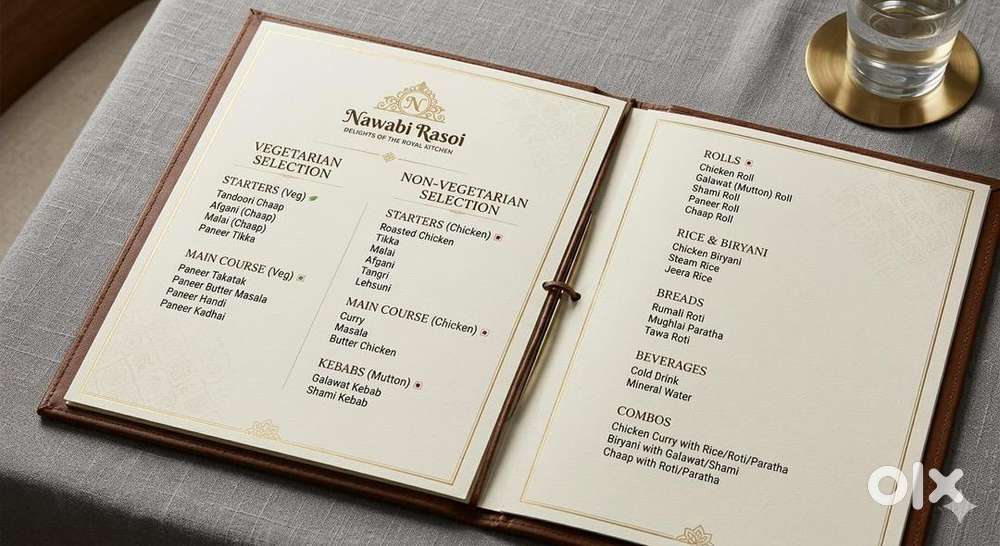 N
Nawabi Rasoi
DELIGHTS OF THE ROYAL KITCHEN
VEGETARIAN
SELECTION
STARTERS (Veg)
Tandoori Chaap
Afgani (Chaap)
Malai (Chaap)
Paneer Tikka
MAIN COURSE (Veg)
Paneer Takatak
Paneer Butter Masala
Paneer Handi
Paneer Kadhai
NON-VEGETARIAN
SELECTION
STARTERS (Chicken)
Roasted Chicken
Tikka
Malai
Afgani
Tangri
Lehsuni
MAIN COURSE (Chicken)
Curry
Masala
Butter Chicken
KEBABS (Mutton)
Galawat Kebab
Shami Kebab
ROLLS
Chicken Roll
Galawat (Mutton) Roll
Shami Roll
Paneer Roll
Chaap Roll
RICE & BIRYANI
Chicken Biryani
Steam Rice
Jeera Rice
BREADS
Rumali Roti
Mughlai Paratha
Tawa Roti
BEVERAGES
Cold Drink
Mineral Water
COMBOS
Chicken Curry with Rice/Roti/Paratha
Biryani with Galawat/Shami
Chaap with Roti/Paratha
olx